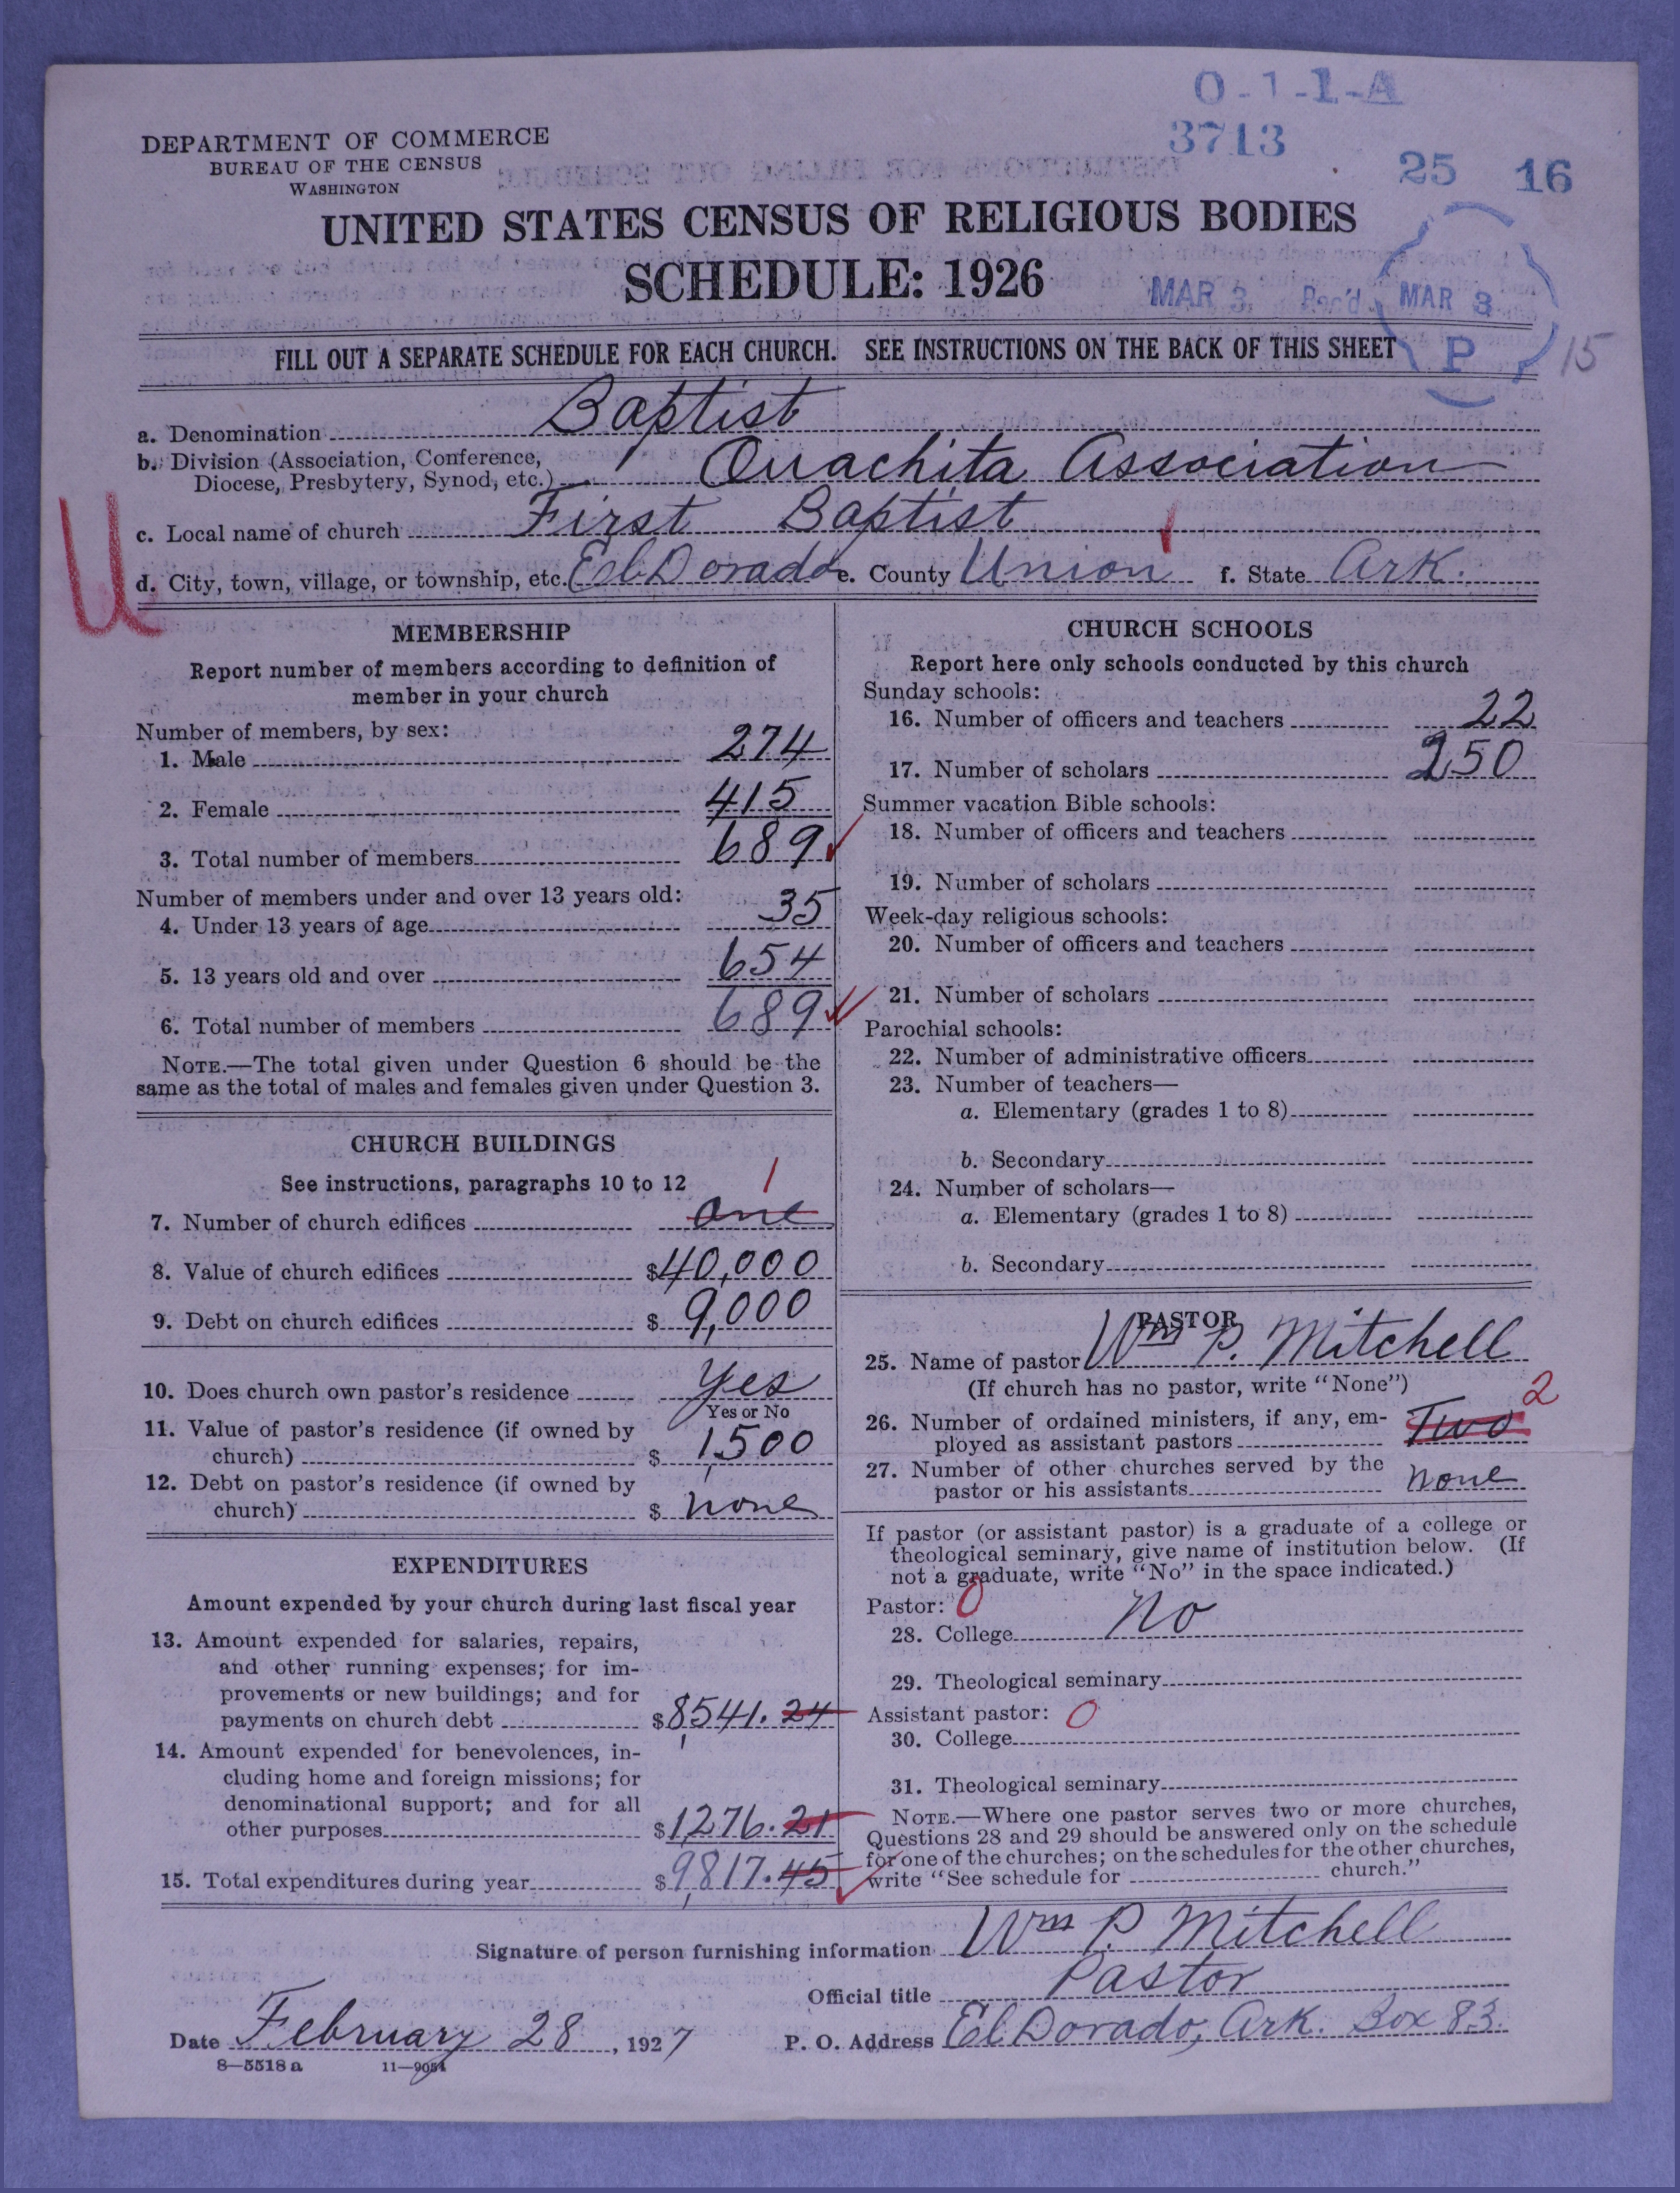 O-1-1-A
3713
25 16
DEPARTMENT OF COMMERCE
BUREAU OF THE CENSUS
WASHINGTON
UNITED STATES CENSUS OF RELIGIOUS BODIES
SCHEDULE: 1926
MAR 3 Rec'd
MAR 3
P
15
FILL OUT A SEPARATE SCHEDULE FOR EACH CHURCH. SEE INSTRUCTIONS ON THE BACK OF THIS SHEET
a. Denomination Baptist
b. Division (Association, Conference,
Diocese, Presbytery, Synod, etc.) Ouachita Association
c. Local name of church First Baptist
d. City, town, village, or township, etc. El Dorado e. County Union f. State Ark.
U
MEMBERSHIP
Report number of members according to definition of
member in your church
Number of members, by sex:
1. Male 274
2. Female 415
3. Total number of members 689
Number of members under and over 13 years old:
4. Under 13 years of age 35
5. 13 years old and over 654
6. Total number of members 689
NOTE.—The total given under Question 6 should be the
same as the total of males and females given under Question 3.
CHURCH BUILDINGS
See instructions, paragraphs 10 to 12
1
7. Number of church edifices one
8. Value of church edifices $40,000
9. Debt on church edifices $ 9,000
10. Does church own pastor's residence Yes
Yes or No
11. Value of pastor's residence (if owned by
church) $ 1,500
12. Debt on pastor's residence (if owned by
church) $ none
EXPENDITURES
Amount expended by your church during last fiscal year
13. Amount expended for salaries, repairs,
and other running expenses; for im-
provements or new buildings; and for
payments on church debt $8,541.24
14. Amount expended for benevolences, in-
cluding home and foreign missions; for
denominational support; and for all
other purposes $1,276.21
15. Total expenditures during year $9,817.45
CHURCH SCHOOLS
Report here only schools conducted by this church
Sunday schools:
16. Number of officers and teachers 22
17. Number of scholars 250
Summer vacation Bible schools:
18. Number of officers and teachers
19. Number of scholars
Week-day religious schools:
20. Number of officers and teachers
21. Number of scholars
Parochial schools:
22. Number of administrative officers
23. Number of teachers—
a. Elementary (grades 1 to 8)
b. Secondary
24. Number of scholars—
a. Elementary (grades 1 to 8)
b. Secondary
PASTOR
25. Name of pastor Wm P. Mitchell
(If church has no pastor, write "None")
26. Number of ordained ministers, if any, em-
ployed as assistant pastors Two 2
27. Number of other churches served by the
pastor or his assistants none
If pastor (or assistant pastor) is a graduate of a college or
theological seminary, give name of institution below. (If
not a graduate, write "No" in the space indicated.)
Pastor: 0
28. College No
29. Theological seminary
Assistant pastor: 0
30. College
31. Theological seminary
NOTE.—Where one pastor serves two or more churches,
Questions 28 and 29 should be answered only on the schedule
for one of the churches; on the schedules for the other churches,
write "See schedule for church."
Signature of person furnishing information Wm P. Mitchell
Official title Pastor
Date February 28, 1927 P. O. Address El Dorado, Ark. Box 83.
8—5518 a 11—9051